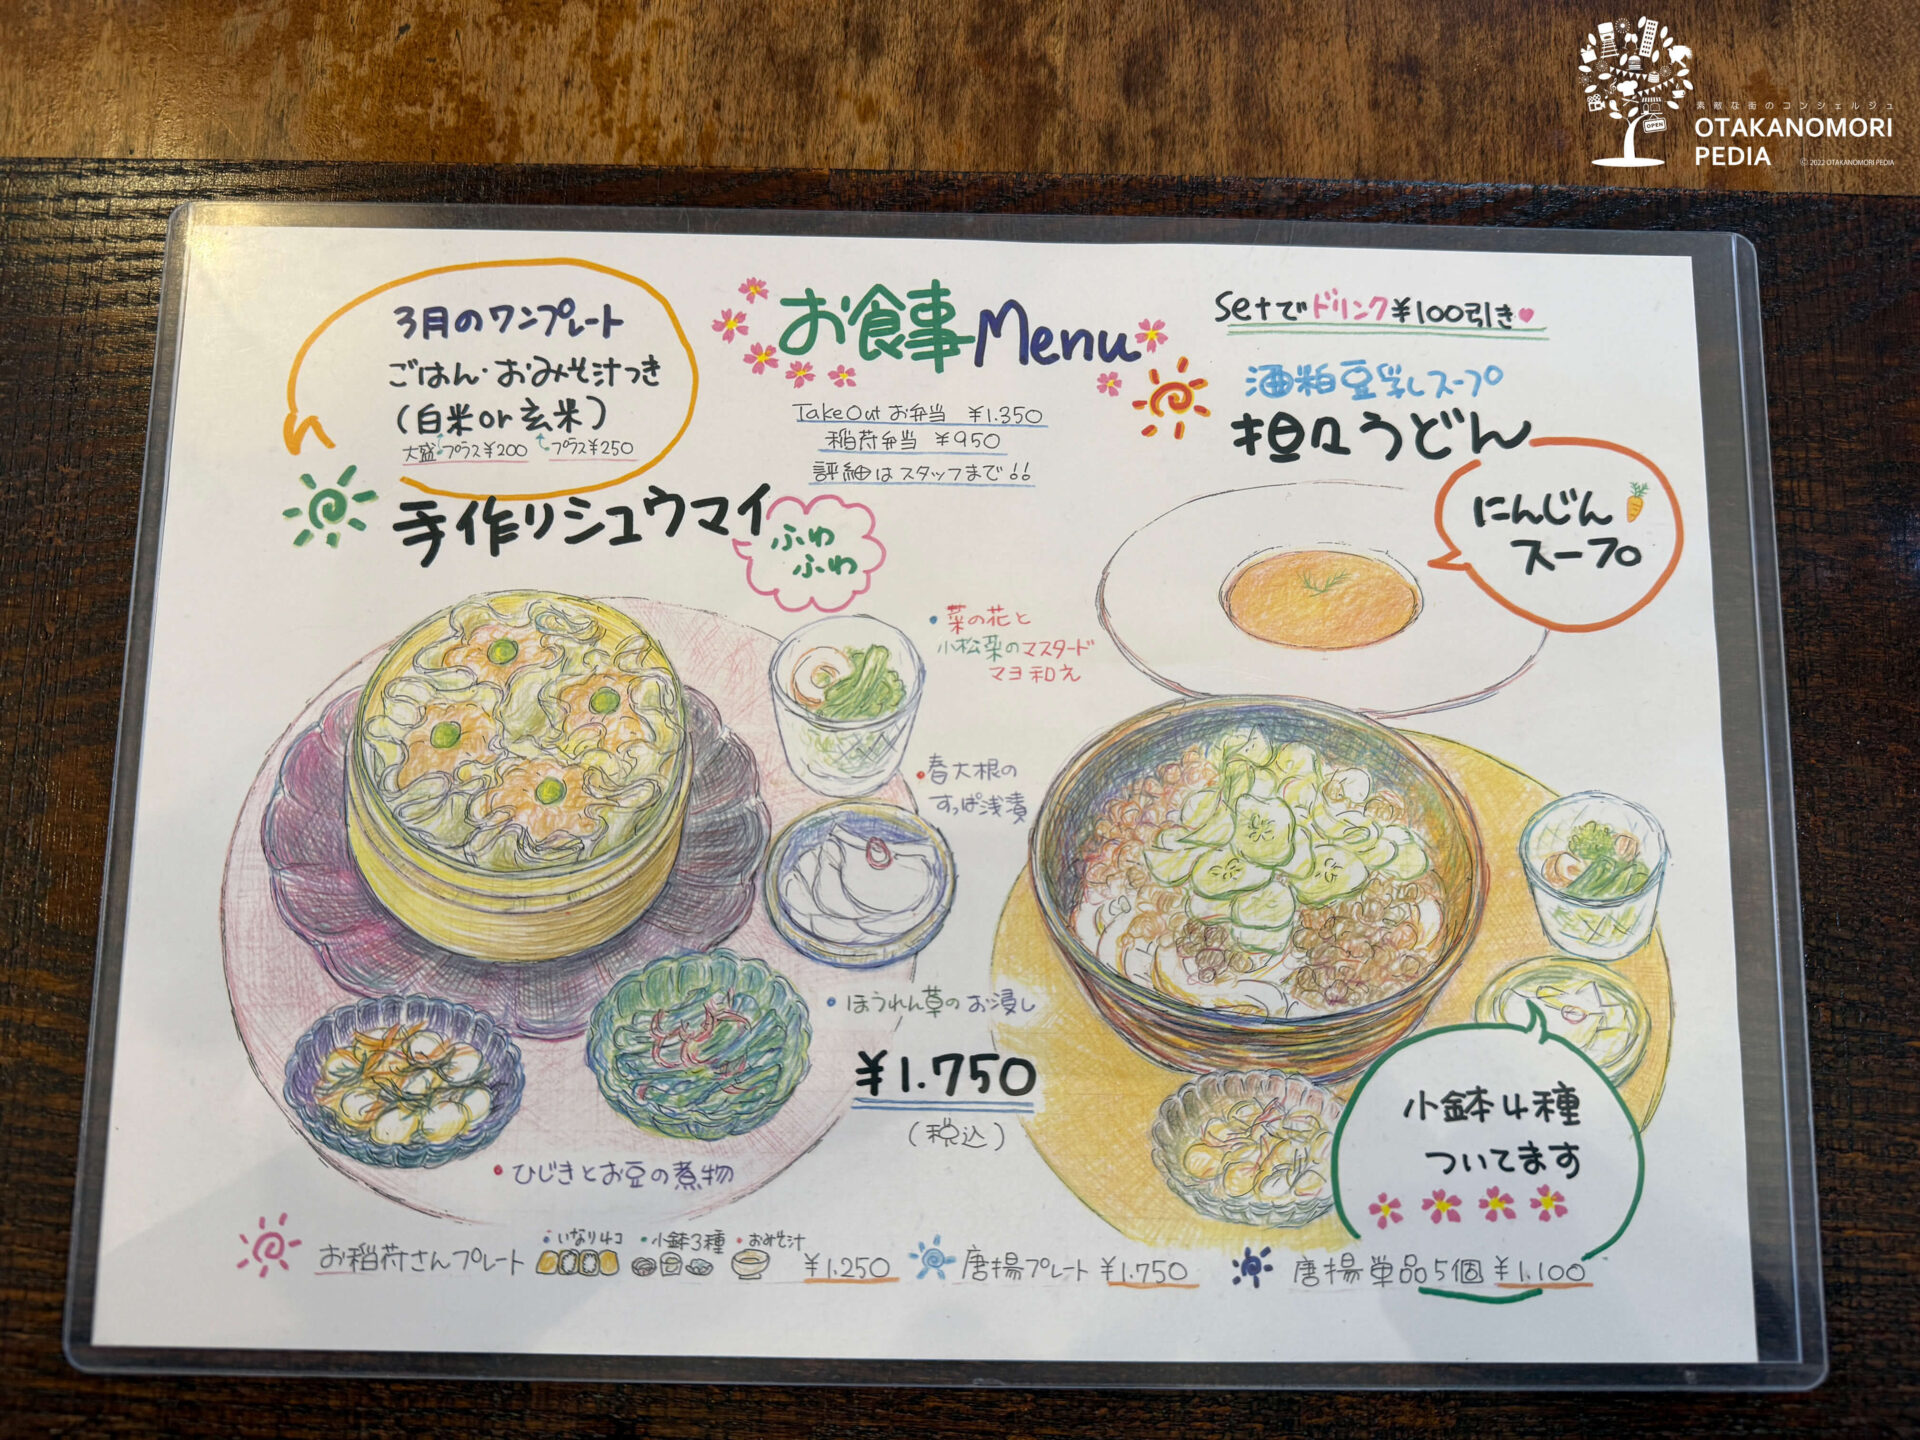 素敵な街のコンシェルジュ
OTAKANOMORI
PEDIA
© 2022 OTAKANOMORI PEDIA
OPEN
お食事Menu
TakeOutお弁当 ¥1.350
稲荷弁当 ¥950
詳細はスタッフまで!!
3月のワンプレート
ごはん・おみそ汁つき
(白米or玄米)
大盛プラス¥200 プラス¥250
手作りシュウマイ
ふわ
ふわ
・菜の花と
小松菜のマスタード
マヨ和え
・春大根の
すっぱ浅漬
・ほうれん草のお浸し
・ひじきとお豆の煮物
¥1.750
(税込)
Setでドリンク¥100引き♥
酒粕豆乳スープ
担々うどん
にんじん
スープ
小鉢4種
ついてます
お稲荷さんプレート ・いなり4コ ・小鉢3種 ・おみそ汁 ¥1.250
唐揚プレート ¥1.750
唐揚単品5個 ¥1.100